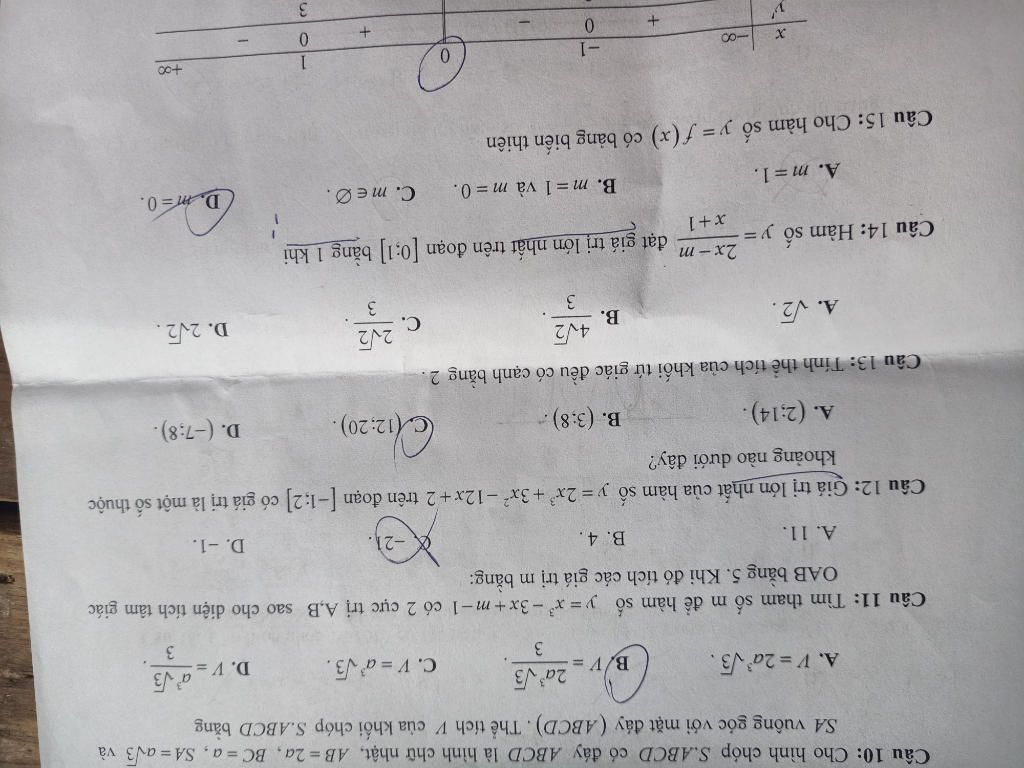 Câu 10: Cho hình chóp S.ABCD có đáy ABCD là hình chữ nhật, AB = 2a, BC = a, SA = a√3 và
SA vuông góc với mặt đáy (ABCD). Thể tích V của khối chóp S.ABCD bằng
A. V = 2a³√3. B. V = 2a³√3/3. C. V = a³√3. D. V = a³√3/3.
Câu 11: Tìm tham số m để hàm số y = x³ − 3x + m − 1 có 2 cực trị A,B sao cho diện tích tâm giác
OAB bằng 5. Khi đó tích các giá trị m bằng:
A. 11. B. 4. C. −21. D. −1.
Câu 12: Giá trị lớn nhất của hàm số y = 2x³ + 3x² − 12x + 2 trên đoạn [−1;2] có giá trị là một số thuộc
khoảng nào dưới đây?
A. (2;14). B. (3;8). C. (12;20). D. (−7;8).
Câu 13: Tính thể tích của khối tứ giác đều có cạnh bằng 2.
A. √2. B. 4√2/3. C. 2√2/3. D. 2√2.
Câu 14: Hàm số y = (2x − m)/(x + 1) đạt giá trị lớn nhất trên đoạn [0;1] bằng 1 khi
A. m = 1. B. m = 1 và m = 0. C. m ∈ ∅. D. m = 0.
Câu 15: Cho hàm số y = f(x) có bảng biến thiên
x −∞ −1 0 1 +∞
y' + 0 − + 0 −
3